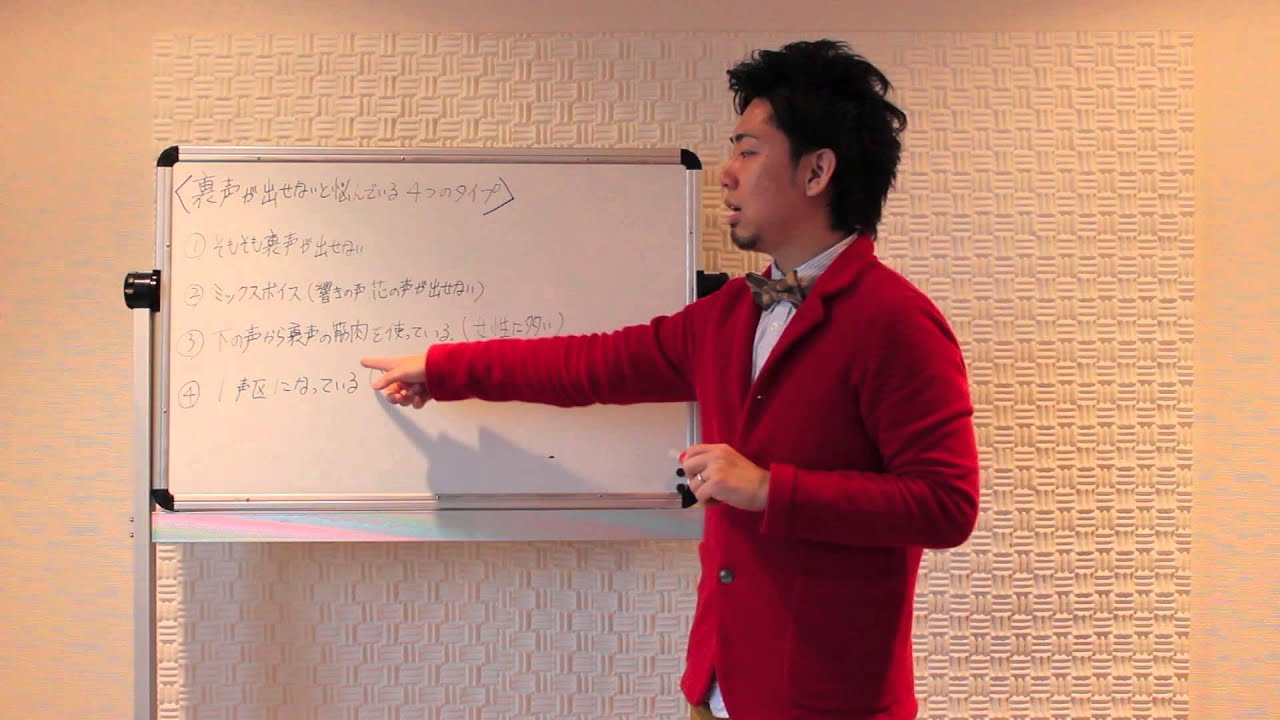 〈裏声が出せないと悩んでいる 4つのタイプ〉
① そもそも裏声が出せない
② ミックスボイス(響きの声 芯の声が出せない)
③ 下の声から裏声の筋肉を使っている.(女性に多い)
④ 1声区になっている